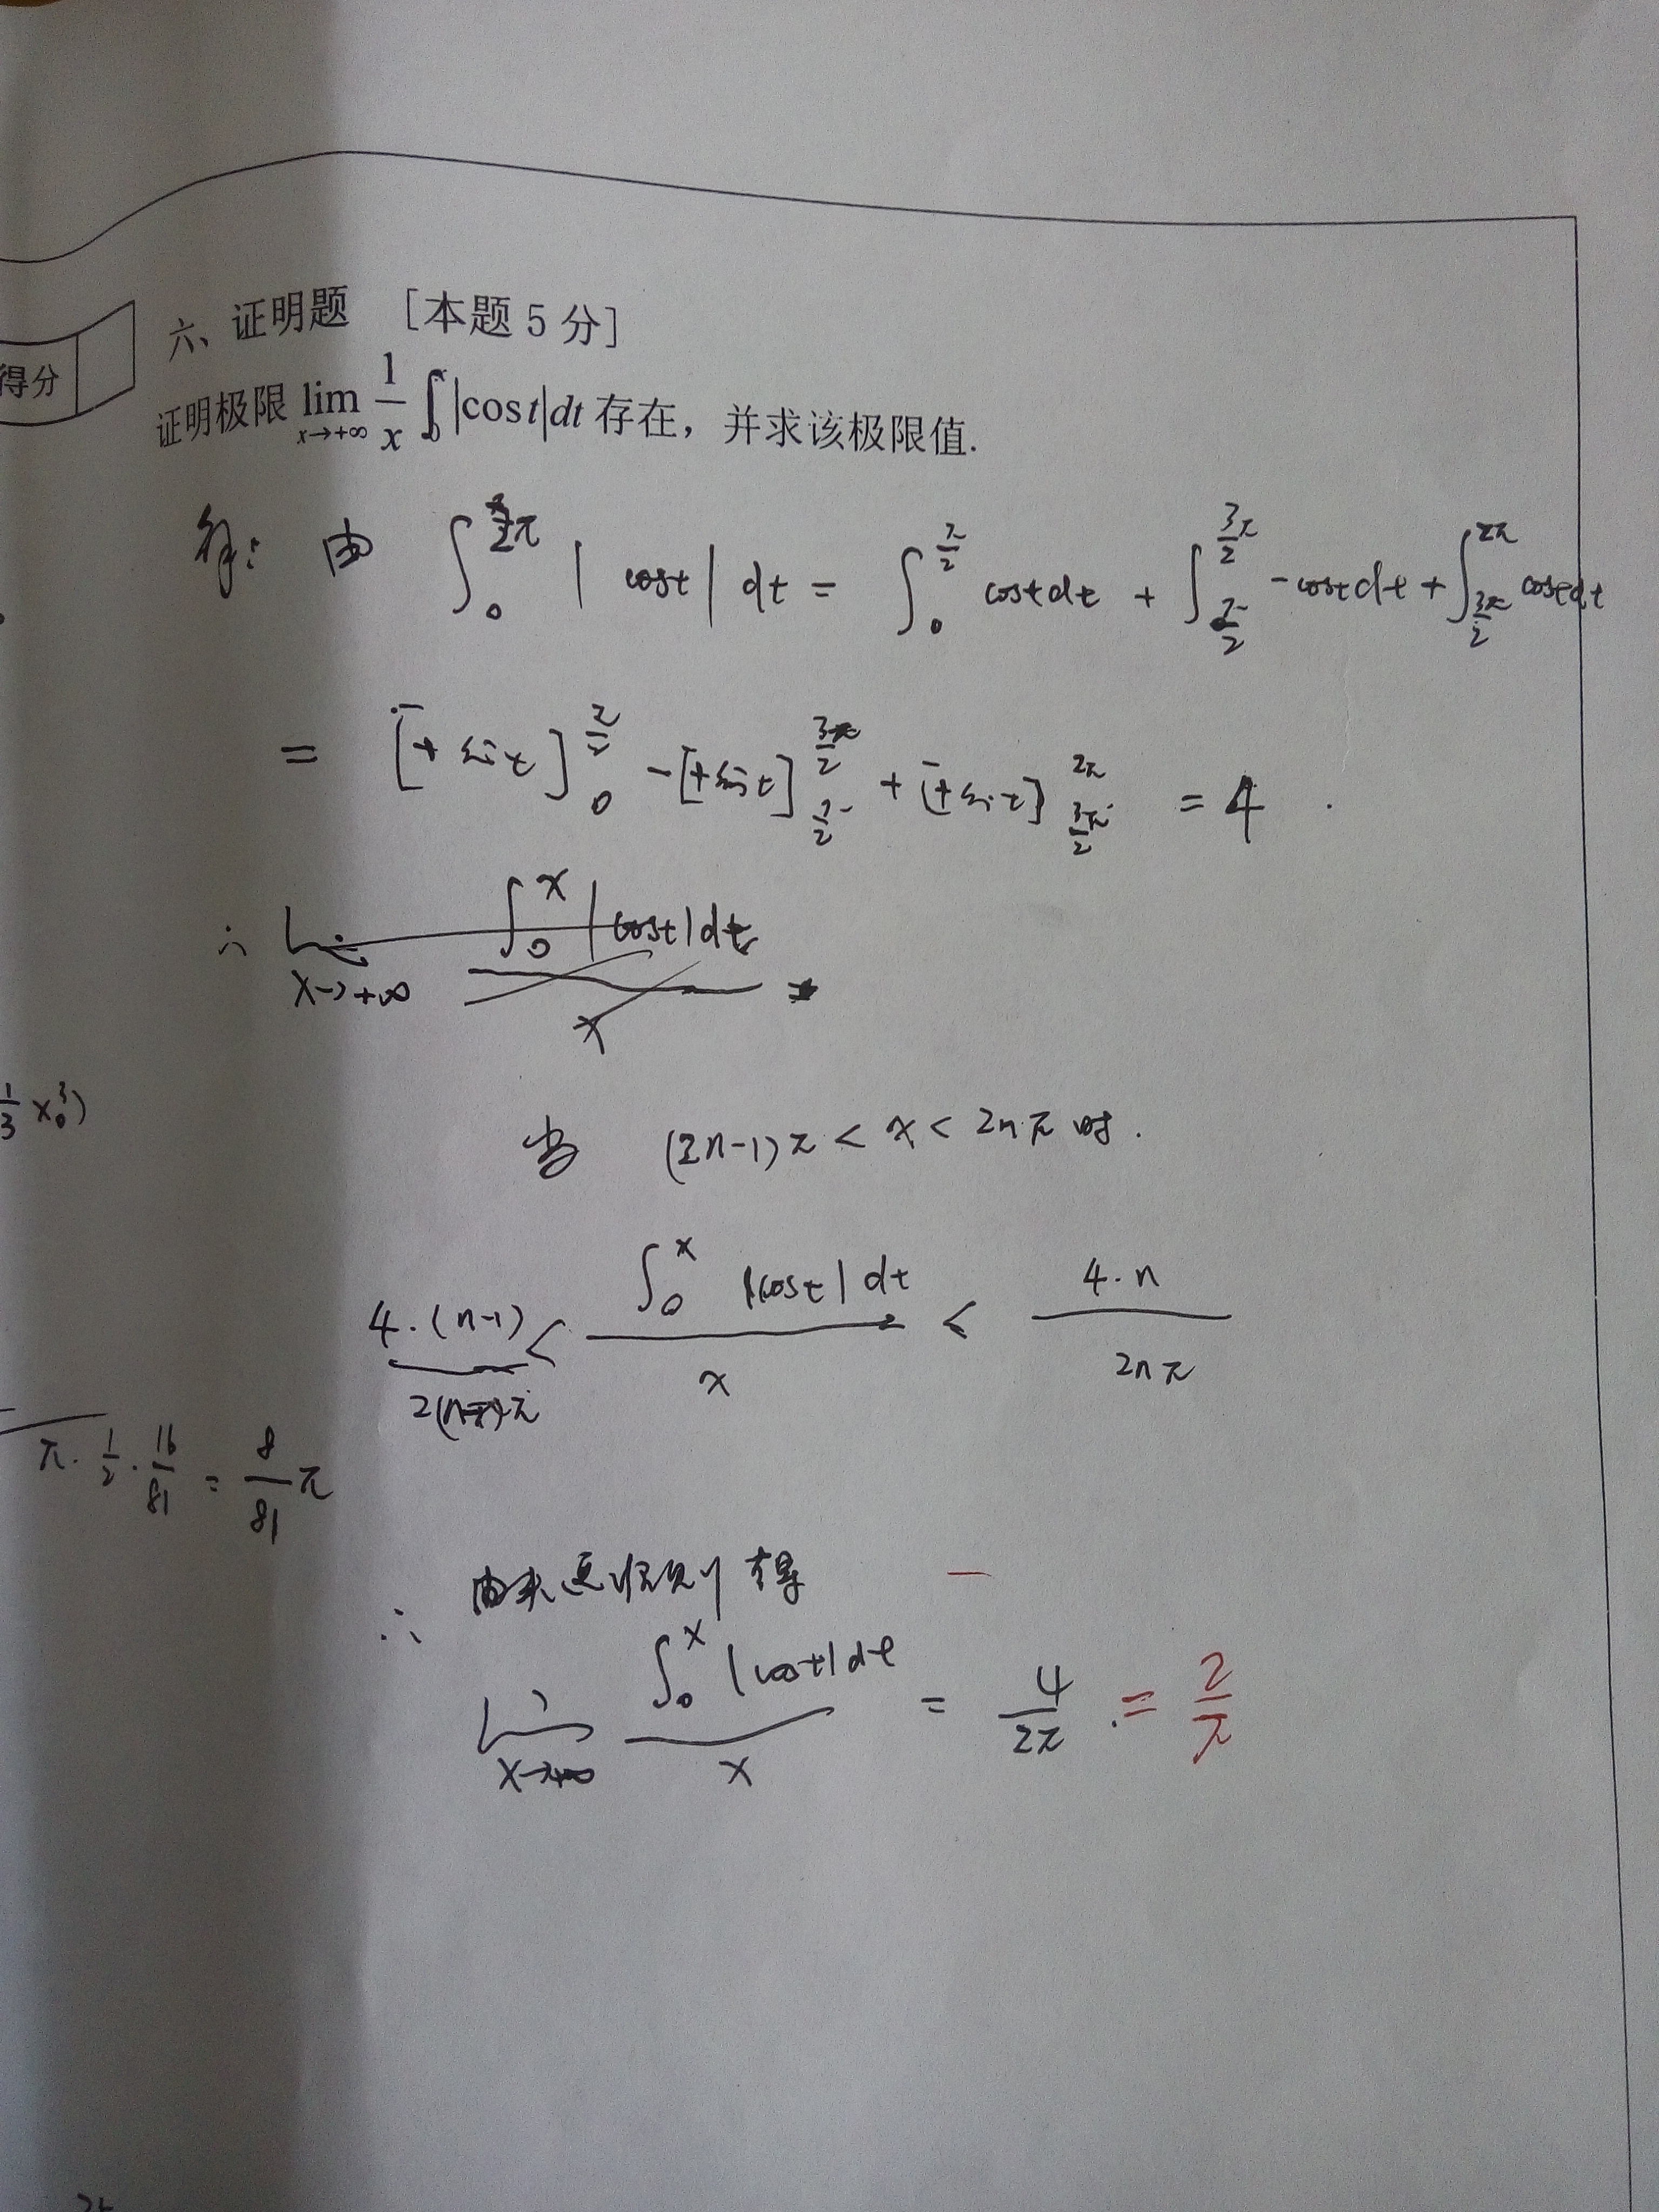 六、证明题 [本题 5 分]
得分
证明极限 lim x→+∞ 1/x ∫₀ˣ |cos t| dt 存在，并求该极限值.
由 ∫₀^{2π} |cost| dt = ∫₀^{π/2} cost dt + ∫_{π/2}^{3π/2} -cost dt + ∫_{3π/2}^{2π} cost dt
= [+sint]₀^{π/2} - [+sint]_{π/2}^{3π/2} + [+sint]_{3π/2}^{2π} = 4 .
∴ lim x→+∞ ∫₀ˣ |cost| dt / x =
1/3 x₀³)
当 (2n-1)π < x < 2nπ 时.
4·(n-1) / 2(n-1)π < ∫₀ˣ |cost| dt / x < 4·n / 2nπ
π · 1/2 · 16/81 = 8/81 π
∴ 由夹逼准则得
lim x→+∞ ∫₀ˣ |cost| dt / x = 4/2π . = 2/π